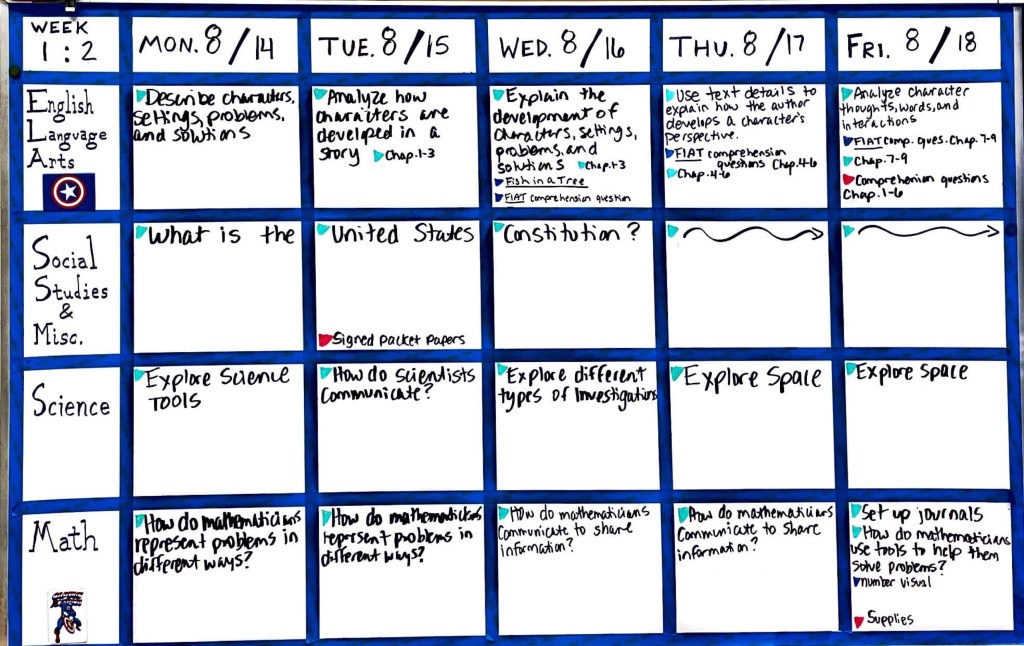 WEEK
1:2
MON. 8/14
TUE. 8/15
WED. 8/16
THU. 8/17
FRI. 8/18
English
Language
Arts
Describe characters,
settings, problems,
and solutions
Analyze how
characters are
developed in a
story Chap. 1-3
Explain the
development of
characters, settings,
problems, and
solutions Chap. 1-3
Fish in a Tree
FIAT comprehension question
Use text details to
explain how the author
develops a character's
perspective.
FIAT comprehension
questions Chap. 4-6
Chap. 4-6
Analyze character
thoughts, words, and
interactions
FIAT comp. ques. Chap. 7-9
Chap. 7-9
Comprehenion questions
Chap. 1-6
Social
Studies
&
Misc.
What is the
United States
Signed Packet Papers
Constitution?
Science
Explore Science
TOOLS
How do scientists
Communicate?
Explore different
types of Investigations
Explore Space
Explore Space
Math
How do mathematicians
represent problems in
different ways?
How do mathematicians
represent problems in
different ways?
How do mathematicians
Communicate to share
information?
How do mathematicians
Communicate to share
information?
Set up journals
How do mathematicians
use tools to help them
solve problems?
number visual
Supplies